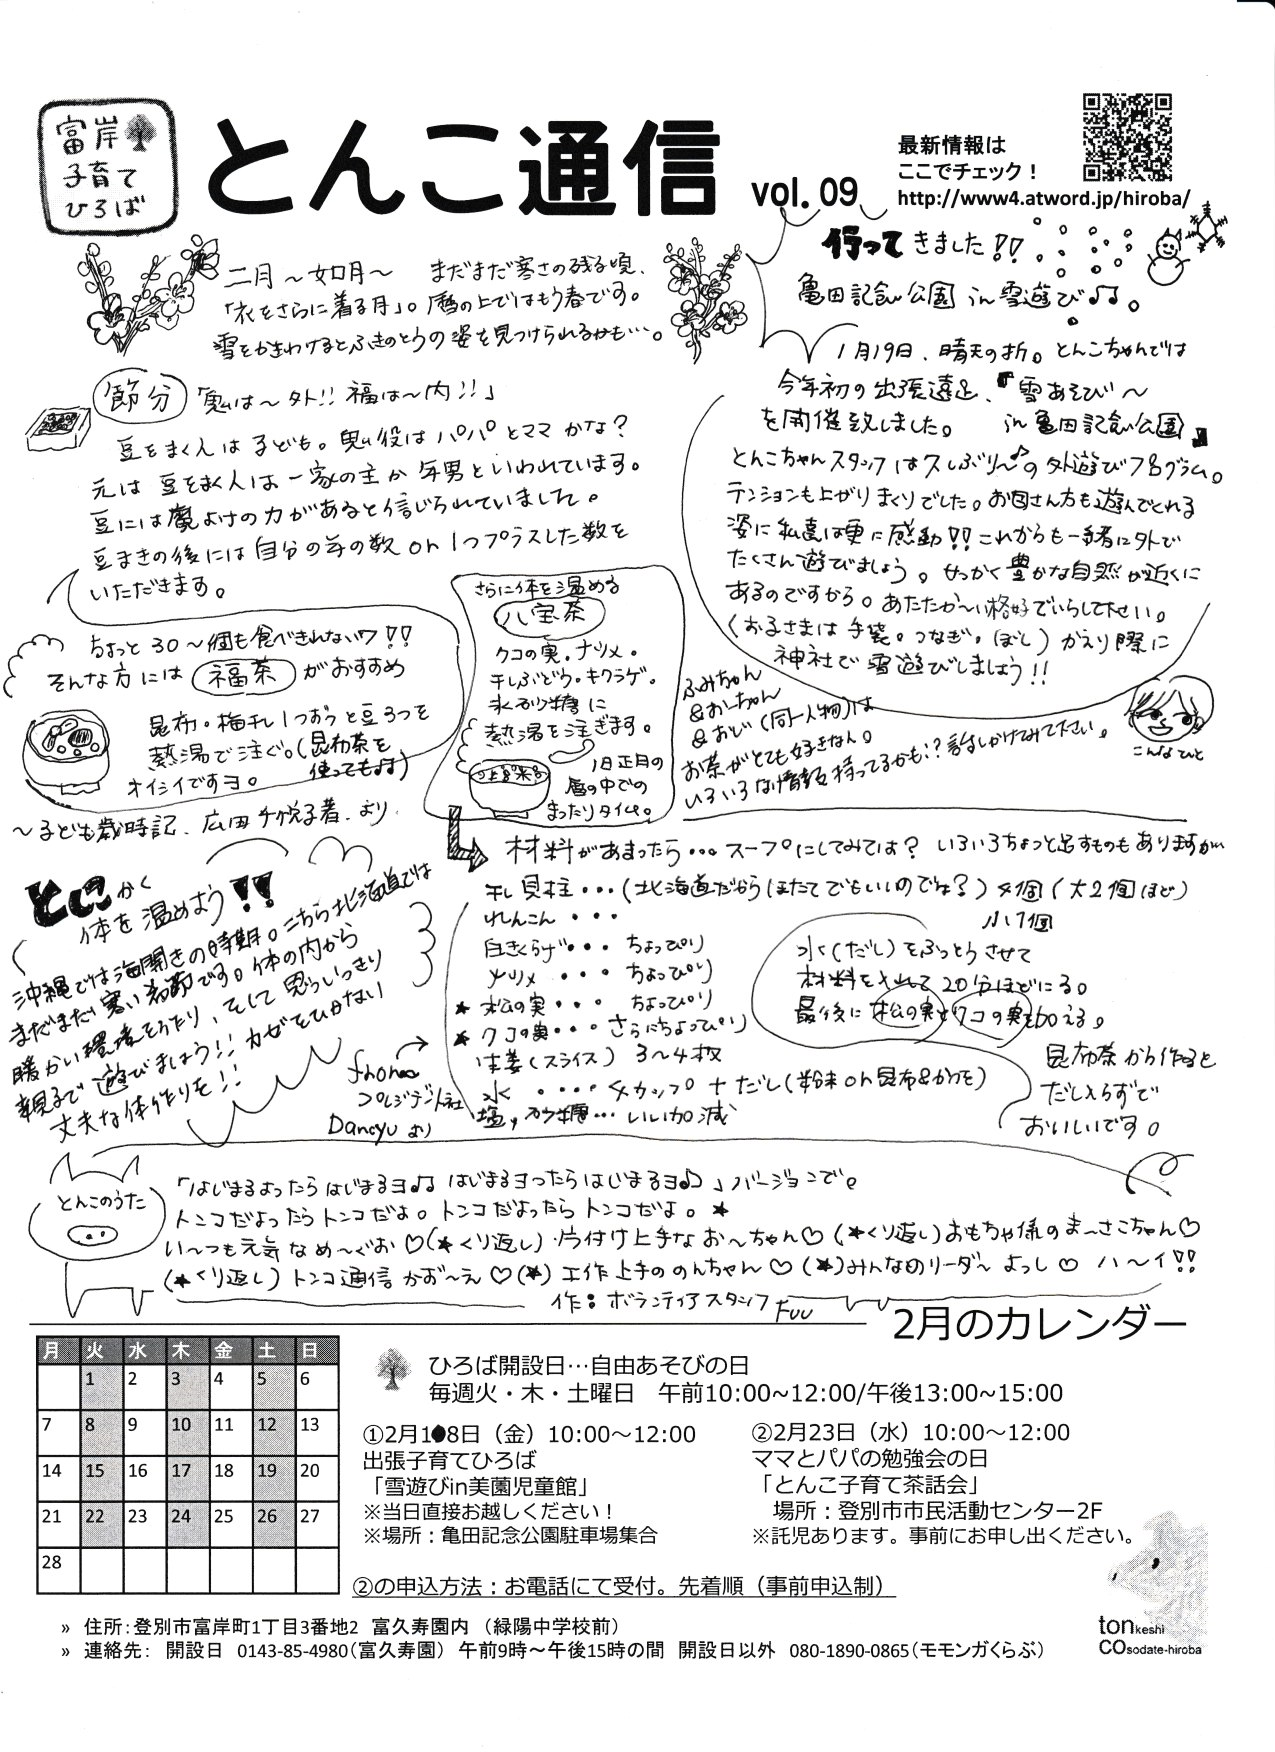 富岸
子育て
ひろば
とんこ通信
vol. 09
最新情報は
ここでチェック！
http://www4.atword.jp/hiroba/
二月～如月～　まだまだ寒さの残る頃、
「衣をさらに着る月」。暦の上ではもう春です。
雪をかきわけるとふきのとうの姿を見つけられるかも…。
節分「鬼は～外!! 福は～内!!」
豆をまく人は子ども。鬼役はパパとママかな？
元は豆をまく人は一家の主か年男といわれています。
豆には魔よけの力があると信じられていました。
豆まきの後には自分の年の数 or 1つプラスした数を
いただきます。
ちょっと30～個も食べきれないワ!!
そんな方には 福茶 がおすすめ
昆布・梅干し1つおうと豆3つを
熱湯で注ぐ。(昆布茶を
使っても♪♪)
オイシイですヨ。
～子ども歳時記、広田千悦子著、より
さらに体を温める
八宝茶
クコの実、ナツメ。
干しぶどう。キクラゲ。
氷砂糖に
熱湯を注ぎます。
旧正月の
暦の中での
まったりタイム。
行ってきました!!
亀田記念公園 in 雪遊び♪♫。
1月19日、晴天の折。とんこちゃんでは
今年初の出張遠足、『雪あそび～
を開催致しました。　in 亀田記念公園』
とんこちゃんスタッフは久しぶり～♪の外遊びプログラム。
テンションも上がりまくりでした。お母さん方も遊んでくれる
姿に私達は更に感動!! これからも一緒に外で
たくさん遊びましょう。せっかく豊かな自然が近くに
あるのですから。あたたか～い格好でいらして下せい。
(お子さまは手袋。つなぎ。ぼし) かえり際に
神社で雪遊びしましょう!!
ふみちゃん
&おーちゃん
&おど(同一人物)は
お茶がとても好きなん。
いろいろな情報持ってるかも!? 話しかけてみて下さい。
こんなひと
とにかく
体を温めよう!!
沖縄では海開きの時期。こちら北海道では
まだまだ寒い季節です。体の内から
暖かい環境をつくり、そして思いっきり
親子で遊びましょう!! カゼをひかない
丈夫な体作りを!!
from
プレジデント社
Dancyu より
材料があまったら… スープにしてみては？ いろいろちょっと足すものもありますが
干し貝柱・・・(北海道だからほたてでもいいのでは？) 4個(大2個ほど)
れんこん・・・ 小1個
白きくらげ・・・ ちょっぴり
ナツメ・・・ ちょっぴり
★ 松の実・・・ ちょっぴり
★ クコの実・・・ さらにちょっぴり
生姜(スライス) 3～4枚
水・・・・ 4カップ + だし(粉末 or 昆布&かつを)
塩, 砂糖… いい加減
水(だし)をふっとうさせて
材料を入れて20分ほどにる。
最後に松の実とクコの実を加える。
昆布茶から作ると
だしいらずで
おいしいです。
とんこのうた
「はじまるよったらはじまるヨ♪♫ はじまるヨったらはじまるヨ♪」バージョンで。
トンコだよったらトンコだよ。トンコだよったらトンコだよ。★
い～つも元気なめ～ぐお♡(★くり返し) 片付け上手なお～ちゃん♡(★くり返し)おもちゃ係のま～さこちゃん♡
(★くり返し) トンコ通信かお～え♡(★) 工作上手ののんちゃん♡(★)みんなのリーダ～よっし♡ ハ～イ!!
作：ボランティアスタッフ Fuu
2月のカレンダー
月 火 水 木 金 土 日
1 2 3 4 5 6
7 8 9 10 11 12 13
14 15 16 17 18 19 20
21 22 23 24 25 26 27
28
ひろば開設日…自由あそびの日
毎週火・木・土曜日　午前10:00~12:00/午後13:00~15:00
①2月18日（金）10:00～12:00
出張子育てひろば
「雪遊びin美園児童館」
※当日直接お越しください！
※場所：亀田記念公園駐車場集合
②2月23日（水）10:00～12:00
ママとパパの勉強会の日
「とんこ子育て茶話会」
場所：登別市市民活動センター2F
※託児あります。事前にお申し出ください。
②の申込方法：お電話にて受付。先着順（事前申込制）
» 住所：登別市富岸町1丁目3番地2　富久寿園内　（緑陽中学校前）
» 連絡先：　開設日　0143-85-4980（富久寿園）　午前9時～午後15時の間　開設日以外　080-1890-0865（モモンガくらぶ）
tonkeshi
cosodate-hiroba